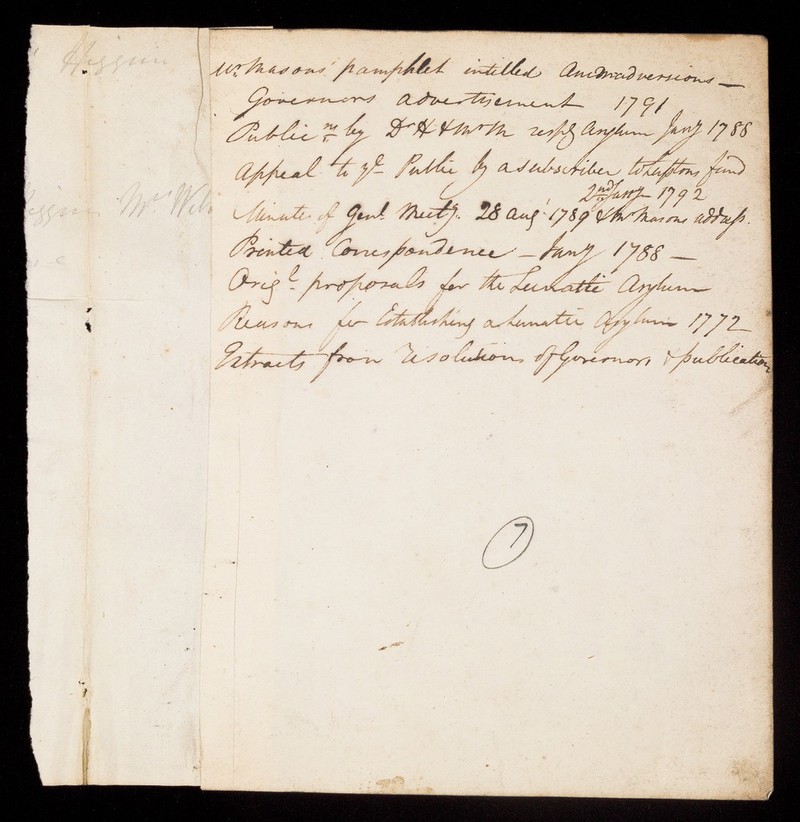 Higgin
Mr. Masons' pamphlet intitled Animadversions —
Governors advertisement 1791
Publicns by Dr H & Mr M respg Asylum Jany 1788
Appeal to ye Public by a subscriber to Luptons fund
2nd Jany 1792
Minutes of Genl. Meetg. 28 Aug' 1789 & Mr Masons address.
Printed Correspondence — Jany 1788 —
Origl. proposals for the Lunatic Asylum
Reasons for Establishing a Lunatic Asylum 1772
Extracts from resolutions of Governors & publications
Higgin Mr. Wil
7